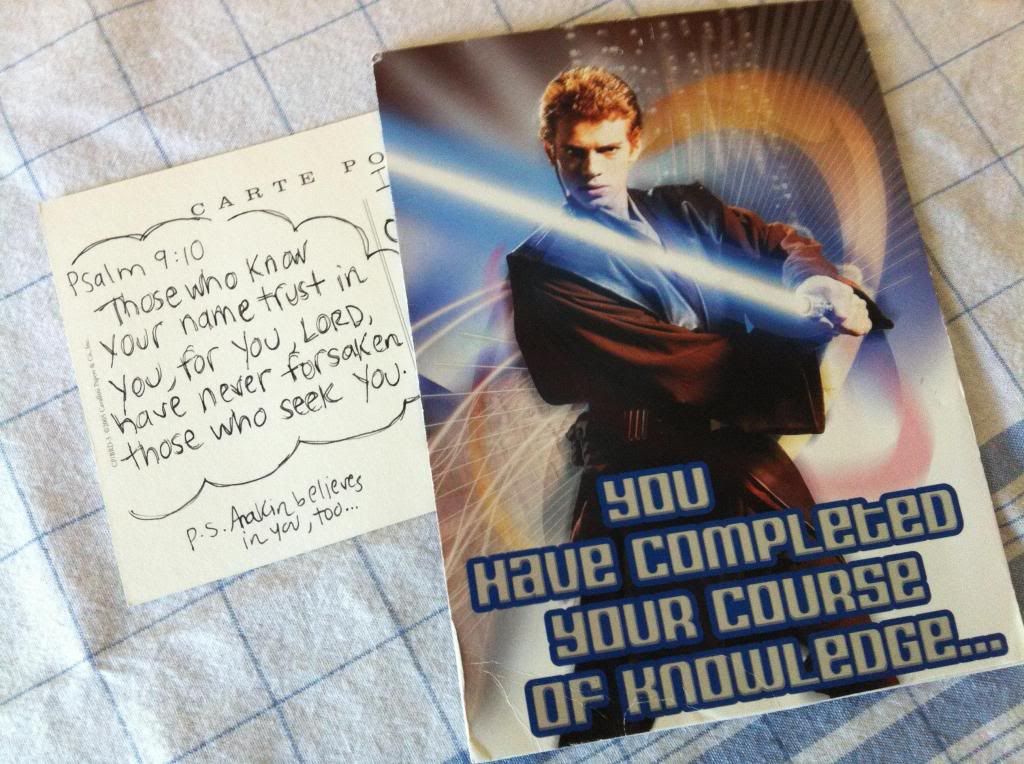 CARTE PO
Psalm 9:10
Those who know
your name trust in
you, for you, LORD,
have never forsaken
those who seek you.
p.s. Anakin believes
in you, too...
YOU
HAVE COMPLETED
YOUR COURSE
OF KNOWLEDGE...